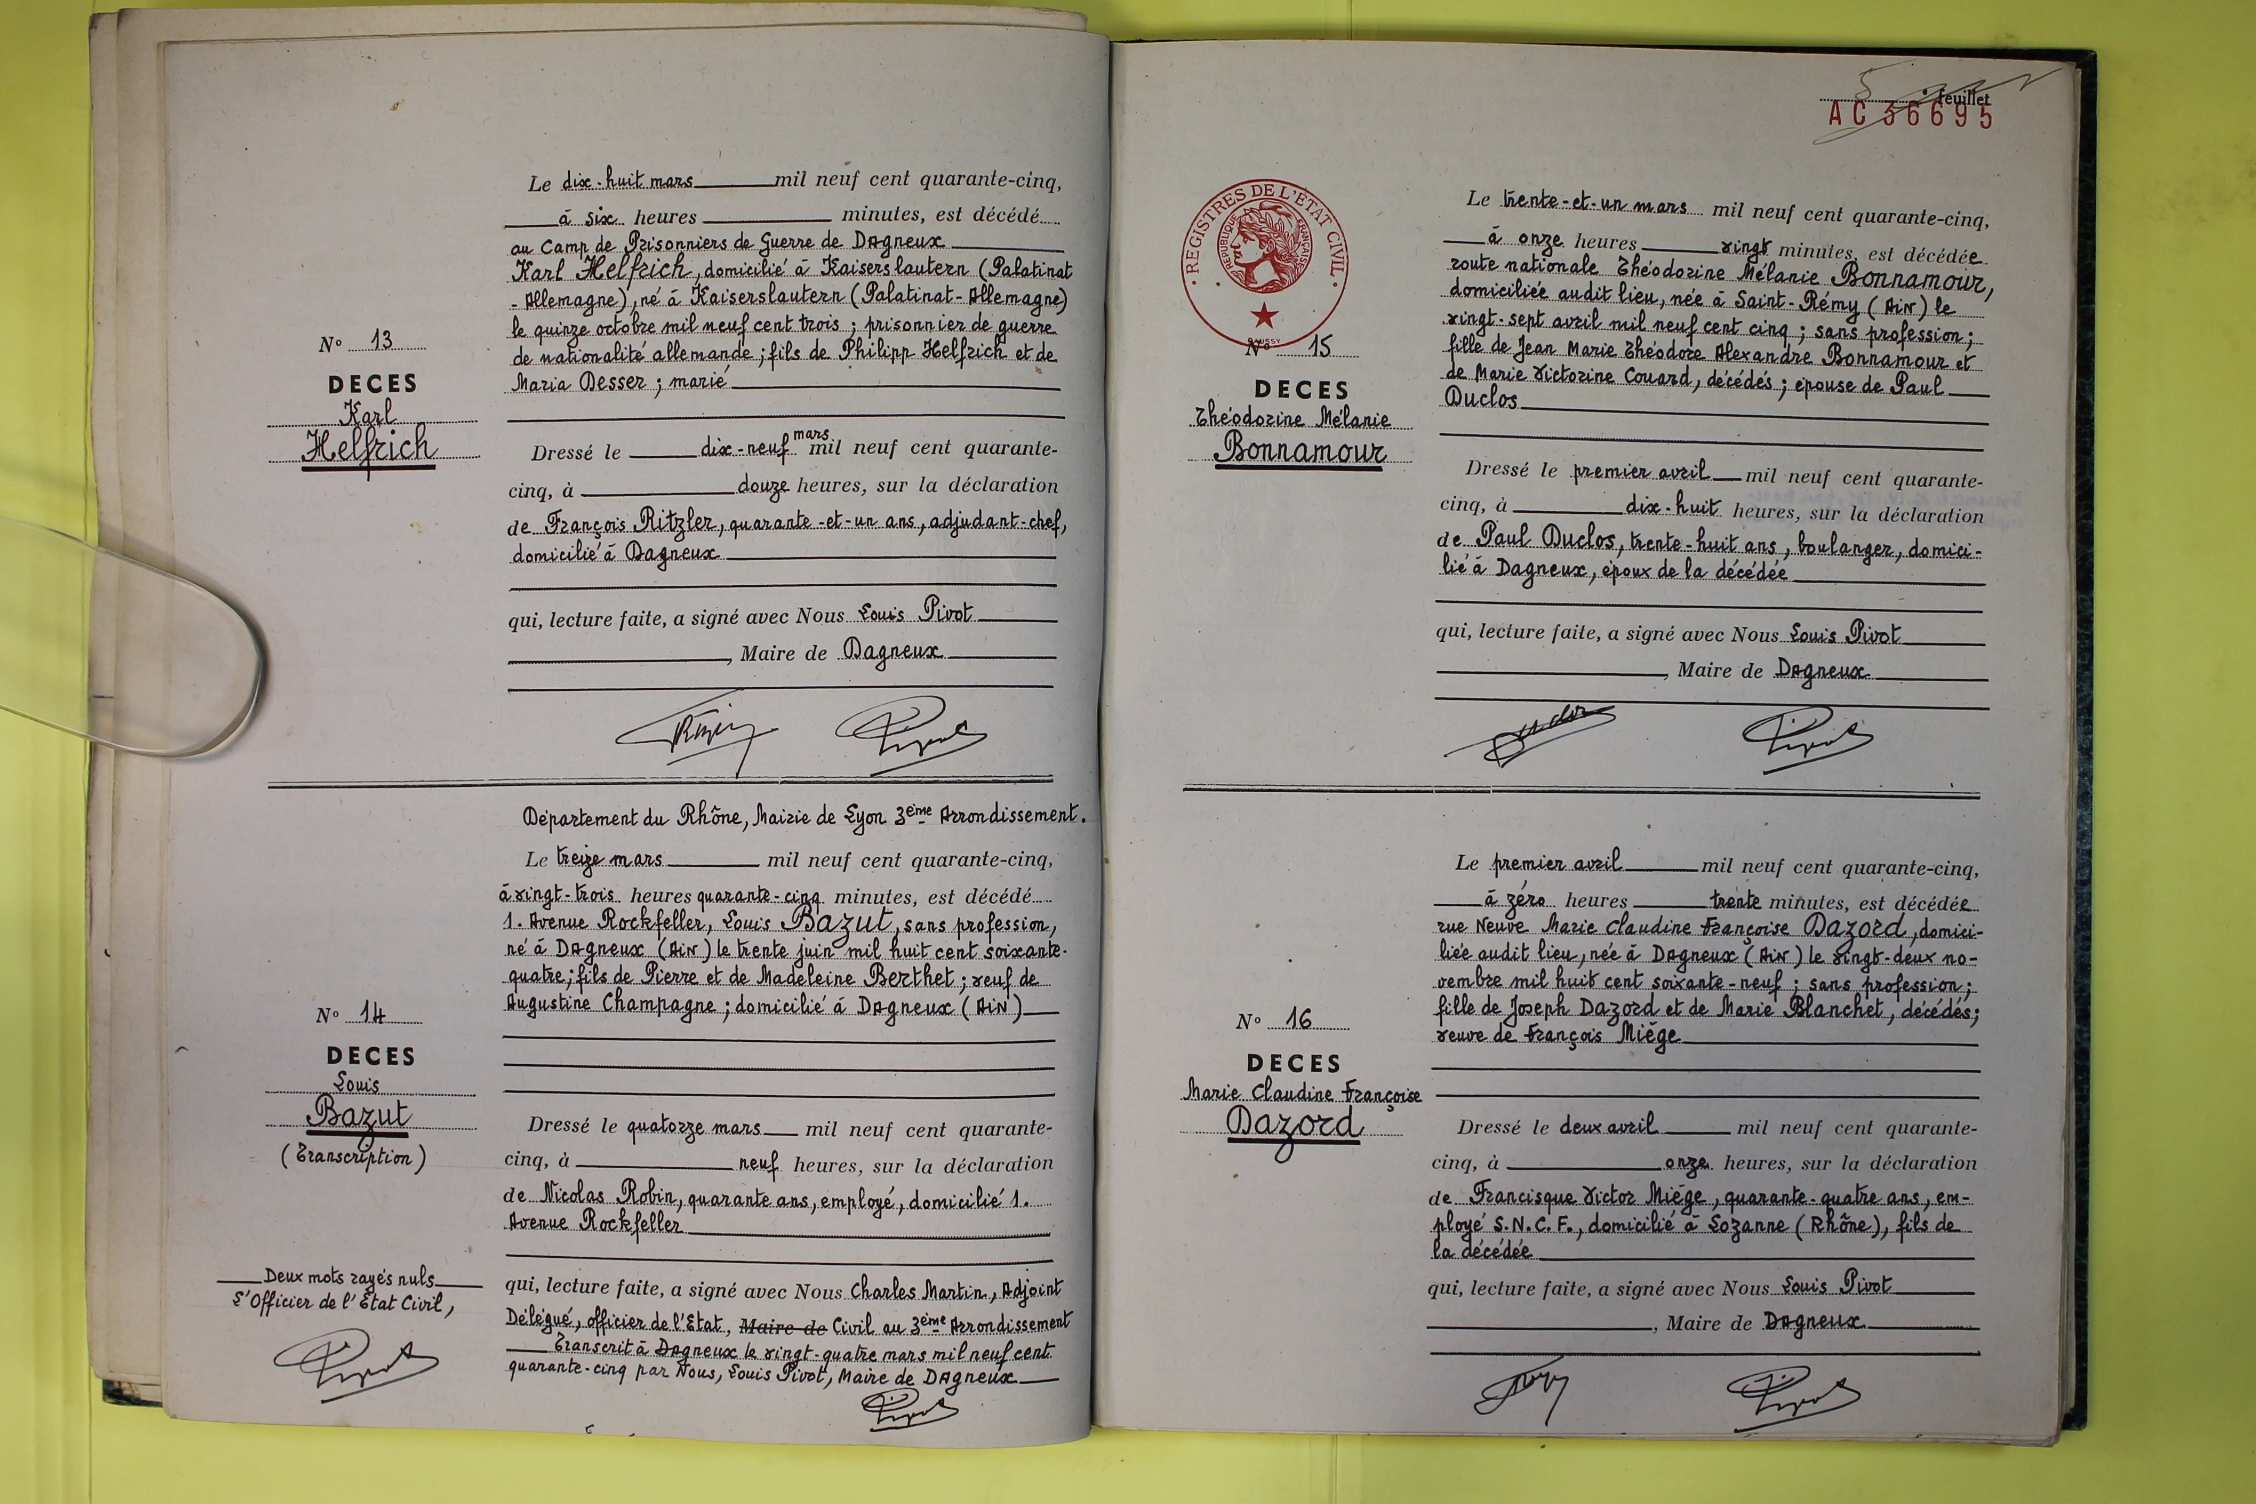 Le dix-huit mars mil neuf cent quarante-cinq,
à six heures minutes, est décédé
au Camp de Prisonniers de Guerre de Dagneux
Karl Helfrich, domicilié à Kaiserslautern (Palatinat
-Allemagne), né à Kaiserslautern (Palatinat-Allemagne)
le quinze octobre mil neuf cent trois ; prisonnier de guerre
de nationalité allemande ; fils de Philipp Helfrich et de
Maria Desser ; marié
N° 13
DECES
Karl
Helfrich
Dressé le dix-neuf mars mil neuf cent quarante-
cinq, à douze heures, sur la déclaration
de François Ritzler, quarante-et-un ans, adjudant-chef,
domicilié à Dagneux
qui, lecture faite, a signé avec Nous Louis Pivot
, Maire de Dagneux
Département du Rhône, Mairie de Lyon 3ème Arrondissement.
Le treize mars mil neuf cent quarante-cinq,
à vingt-trois heures quarante-cinq minutes, est décédé
1. Avenue Rockfeller, Louis Bazut, sans profession,
né à Dagneux (Ain) le trente juin mil huit cent soixante-
quatre ; fils de Pierre et de Madeleine Berthet ; veuf de
Augustine Champagne ; domicilié à Dagneux (Ain)
N° 14
DECES
Louis
Bazut
(Transcription)
Dressé le quatorze mars mil neuf cent quarante-
cinq, à neuf heures, sur la déclaration
de Nicolas Robin, quarante ans, employé, domicilié 1.
Avenue Rockfeller
Deux mots rayés nuls
L'Officier de l'Etat Civil,
Pivot
qui, lecture faite, a signé avec Nous Charles Martin, Adjoint
Délégué, officier de l'Etat, Maire de Civil au 3ème Arrondissement
Transcrit à Dagneux le vingt-quatre mars mil neuf cent
quarante-cinq par Nous, Louis Pivot, Maire de Dagneux
Pivot
5 e feuillet
AC 36695
REGISTRES DE L'ETAT CIVIL
REPUBLIQUE FRANÇAISE
Le trente-et-un mars mil neuf cent quarante-cinq,
à onze heures vingt minutes, est décédée
route nationale Théodorine Mélanie Bonnamour,
domiciliée audit lieu, née à Saint-Rémy (Ain) le
vingt-sept avril mil neuf cent cinq ; sans profession ;
fille de Jean Marie Théodore Alexandre Bonnamour et
de Marie Victorine Couard, décédés ; épouse de Paul
Duclos
N° 15
DECES
Théodorine Mélanie
Bonnamour
Dressé le premier avril mil neuf cent quarante-
cinq, à dix-huit heures, sur la déclaration
de Paul Duclos, trente-huit ans, boulanger, domici-
lié à Dagneux, époux de la décédée
qui, lecture faite, a signé avec Nous Louis Pivot
, Maire de Dagneux
Pivot
Le premier avril mil neuf cent quarante-cinq,
à zéro heures trente minutes, est décédée
rue Neuve Marie Claudine Françoise Dazord, domici-
liée audit lieu, née à Dagneux (Ain) le vingt-deux no-
vembre mil huit cent soixante-neuf ; sans profession ;
fille de Joseph Dazord et de Marie Blanchet, décédés ;
veuve de François Miège
N° 16
DECES
Marie Claudine Françoise
Dazord
Dressé le deux avril mil neuf cent quarante-
cinq, à onze heures, sur la déclaration
de Francisque Victor Miège, quarante-quatre ans, em-
ployé S.N.C.F., domicilié à Lozanne (Rhône), fils de
la décédée
qui, lecture faite, a signé avec Nous Louis Pivot
, Maire de Dagneux
Pivot